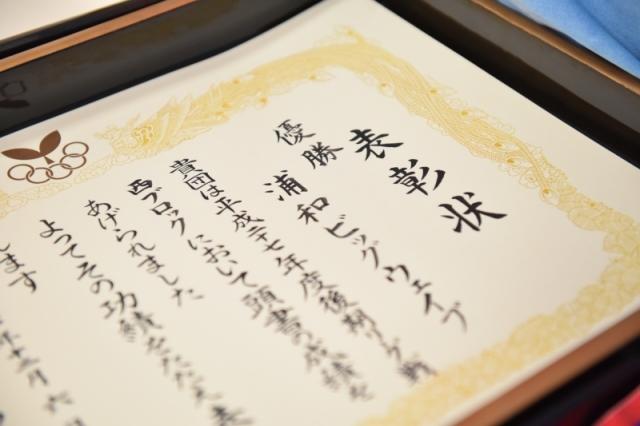 表彰状
優勝 浦和ビッグウェイブ
貴団は平成二十七年度後期リーグ戦
西ブロックにおいて頭書の成績を
あげられました
よってその功績をたたえ表
します
年十二月六